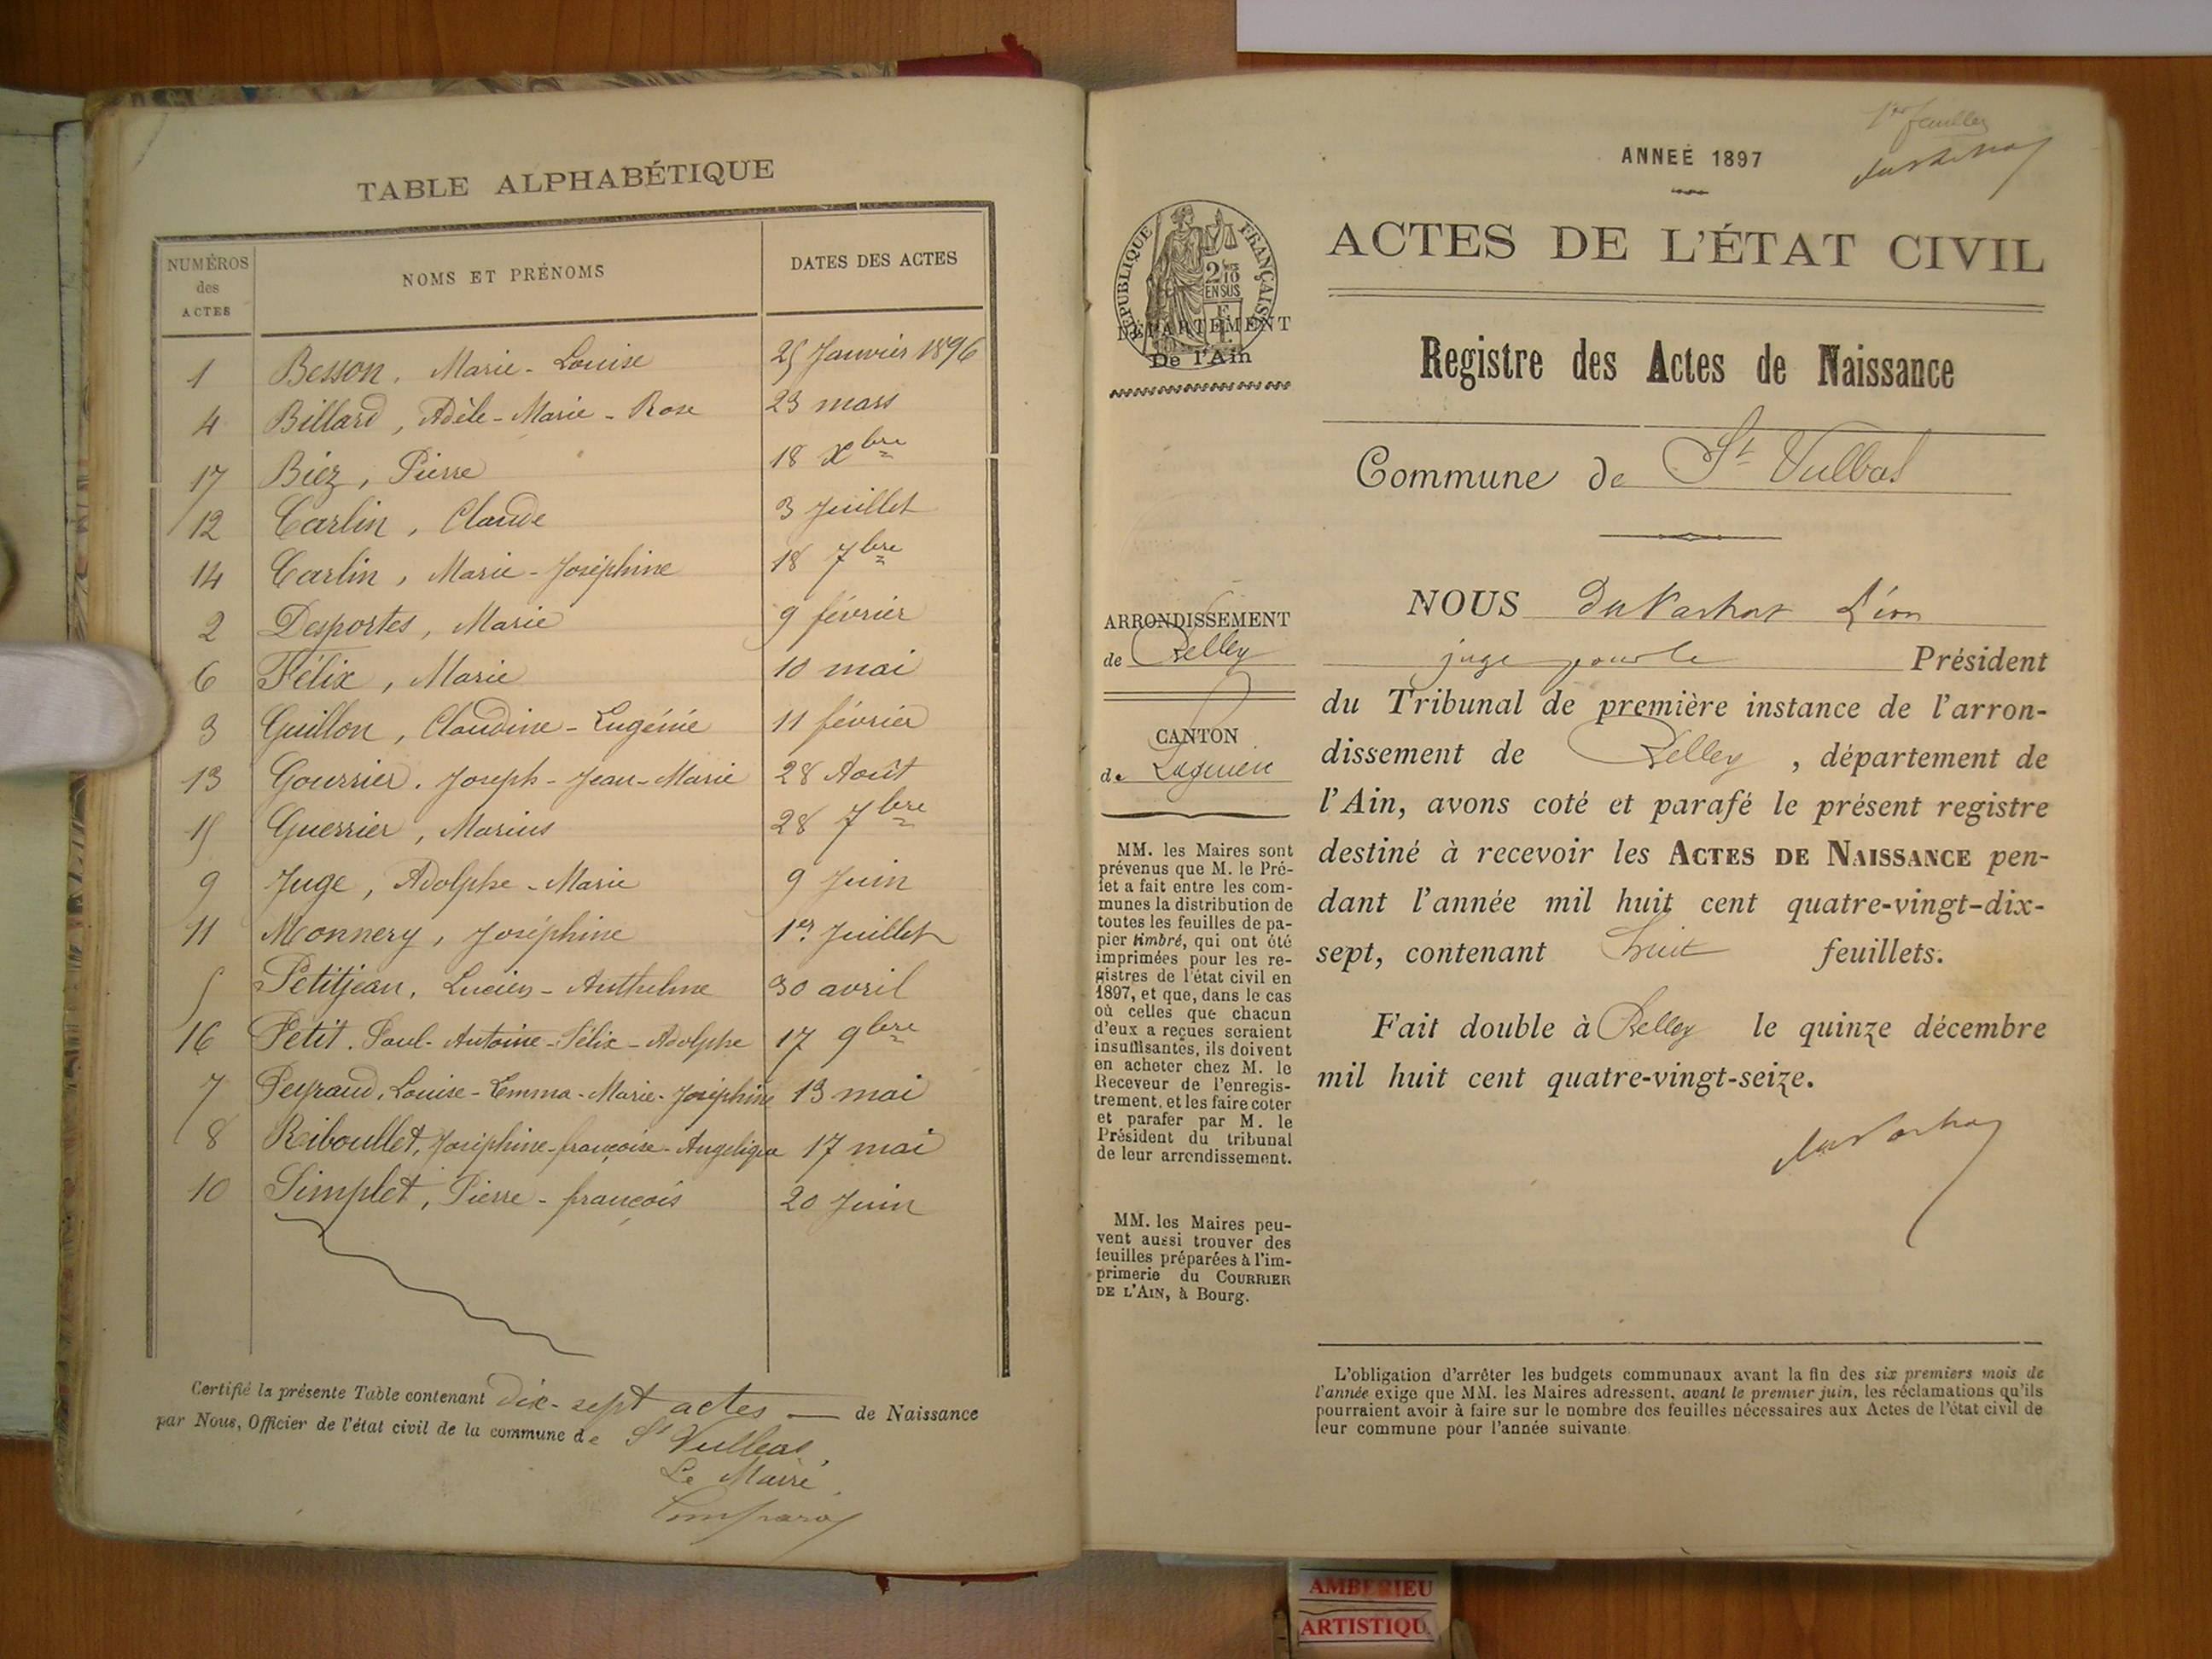 TABLE ALPHABÉTIQUE
NUMÉROS des ACTES NOMS ET PRÉNOMS DATES DES ACTES
1 Besson, Marie-Louise 25 Janvier 1896
4 Billard, Adèle-Marie-Rose 23 mars
17 Biez, Pierre 18 Xbre
12 Carlin, Claude 3 Juillet
14 Carlin, Marie-Joséphine 18 7bre
2 Desportes, Marie 9 février
6 Félix, Marie 10 mai
3 Guillon, Claudine-Eugénie 11 février
13 Gourrier. Joseph-Jean-Marie 28 Août
15 Guerrier, Marius 28 7bre
9 Juge, Adolphe-Marie 9 Juin
11 Monnery, Joséphine 1er Juillet
5 Petitjean, Lucien-Anthelme 30 avril
16 Petit. Paul-Antoine-Félix-Adolphe 17 9bre
7 Peyraud, Louise-Emma-Marie-Joséphine 13 mai
8 Riboullet, Joséphine-françoise-Angelique 17 mai
10 Simplet, Pierre-françois 20 Juin
Certifié la présente Table contenant dix-sept actes — de Naissance
par Nous, Officier de l'état civil de la commune de St Vulbas,
Le Maire
1er feuillet
ANNEÉ 1897
ACTES DE L'ÉTAT CIVIL
Registre des Actes de Naissance
Commune de St Vulbas
RÉPUBLIQUE FRANÇAISE
2/10
EN SUS
DÉPARTEMENT
De l'Ain
ARRONDISSEMENT
de Belley
CANTON
de Lagnieu
MM. les Maires sont
prévenus que M. le Pré-
fet a fait entre les com-
munes la distribution de
toutes les feuilles de pa-
pier timbré, qui ont été
imprimées pour les re-
gistres de l'état civil en
1897, et que, dans le cas
où celles que chacun
d'eux a reçues seraient
insuffisantes, ils doivent
en acheter chez M. le
Receveur de l'enregis-
trement, et les faire coter
et parafer par M. le
Président du tribunal
de leur arrondissement.
MM. les Maires peu-
vent aussi trouver des
feuilles préparées à l'im-
primerie du COURRIER
DE L'AIN, à Bourg.
NOUS Léon
juge pour le Président
du Tribunal de première instance de l'arron-
dissement de Belley, département de
l'Ain, avons coté et parafé le présent registre
destiné à recevoir les ACTES DE NAISSANCE pen-
dant l'année mil huit cent quatre-vingt-dix-
sept, contenant huit feuillets.
Fait double à Belley le quinze décembre
mil huit cent quatre-vingt-seize.
L'obligation d'arrêter les budgets communaux avant la fin des six premiers mois de
l'année exige que MM. les Maires adressent, avant le premier juin, les réclamations qu'ils
pourraient avoir à faire sur le nombre des feuilles nécessaires aux Actes de l'état civil de
leur commune pour l'année suivante
AMBERIEU
ARTISTIQU